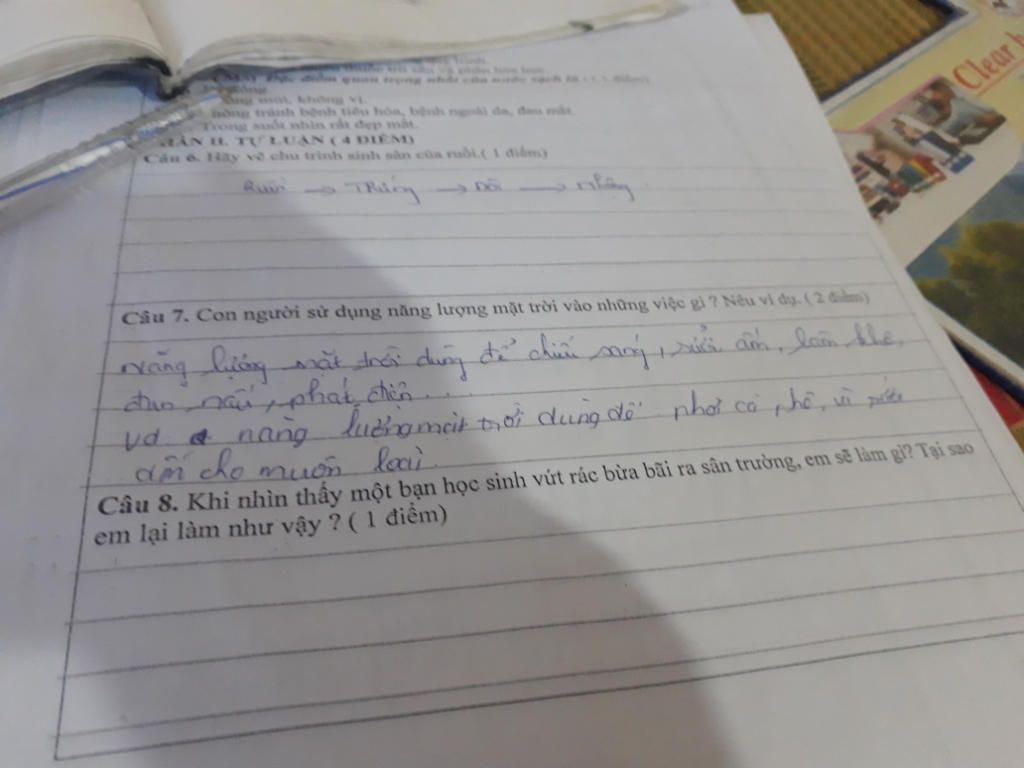 quan trọng nhất của nước sạch là : ( 1 điểm)
mùi, không vị.
tránh bệnh tiêu hóa, bệnh ngoài da, đau mắt.
Trong suốt nhìn rất đẹp mắt.
PHẦN II. TỰ LUẬN ( 4 ĐIỂM)
Câu 6. Hãy vẽ chu trình sinh sản của ruồi.( 1 điểm)
Ruồi → Trứng → Dòi → Nhộng
Câu 7. Con người sử dụng năng lượng mặt trời vào những việc gì ? Nêu ví dụ. ( 2 điểm)
năng lượng mặt trời dùng để chiếu sáng, sưởi ấm, làm khô,
đun nấu, phát điện...
vd năng lượng mặt trời dùng để phơi cà phê, và sưởi
ấm cho muôn loài.
Câu 8. Khi nhìn thấy một bạn học sinh vứt rác bừa bãi ra sân trường, em sẽ làm gì? Tại sao
em lại làm như vậy ? ( 1 điểm)
Clear